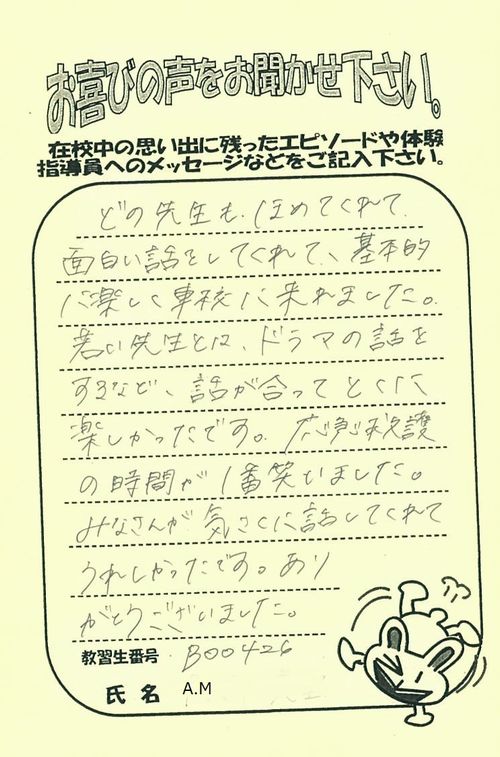 お喜びの声をお聞かせ下さい。
在校中の思い出に残ったエピソードや体験
指導員へのメッセージなどをご記入下さい。
どの先生も、ほめてくれて
面白い話をしてくれて、基本的
に楽しく車校に来れました。
若い先生とは、ドラマの話を
するなど、話が合ってとくに
楽しかったです。応急救護
の時間が1番笑いました。
みなさんが気さくに話してくれて
うれしかったです。あり
がとうございました。
教習生番号 B00426
氏名 A.M